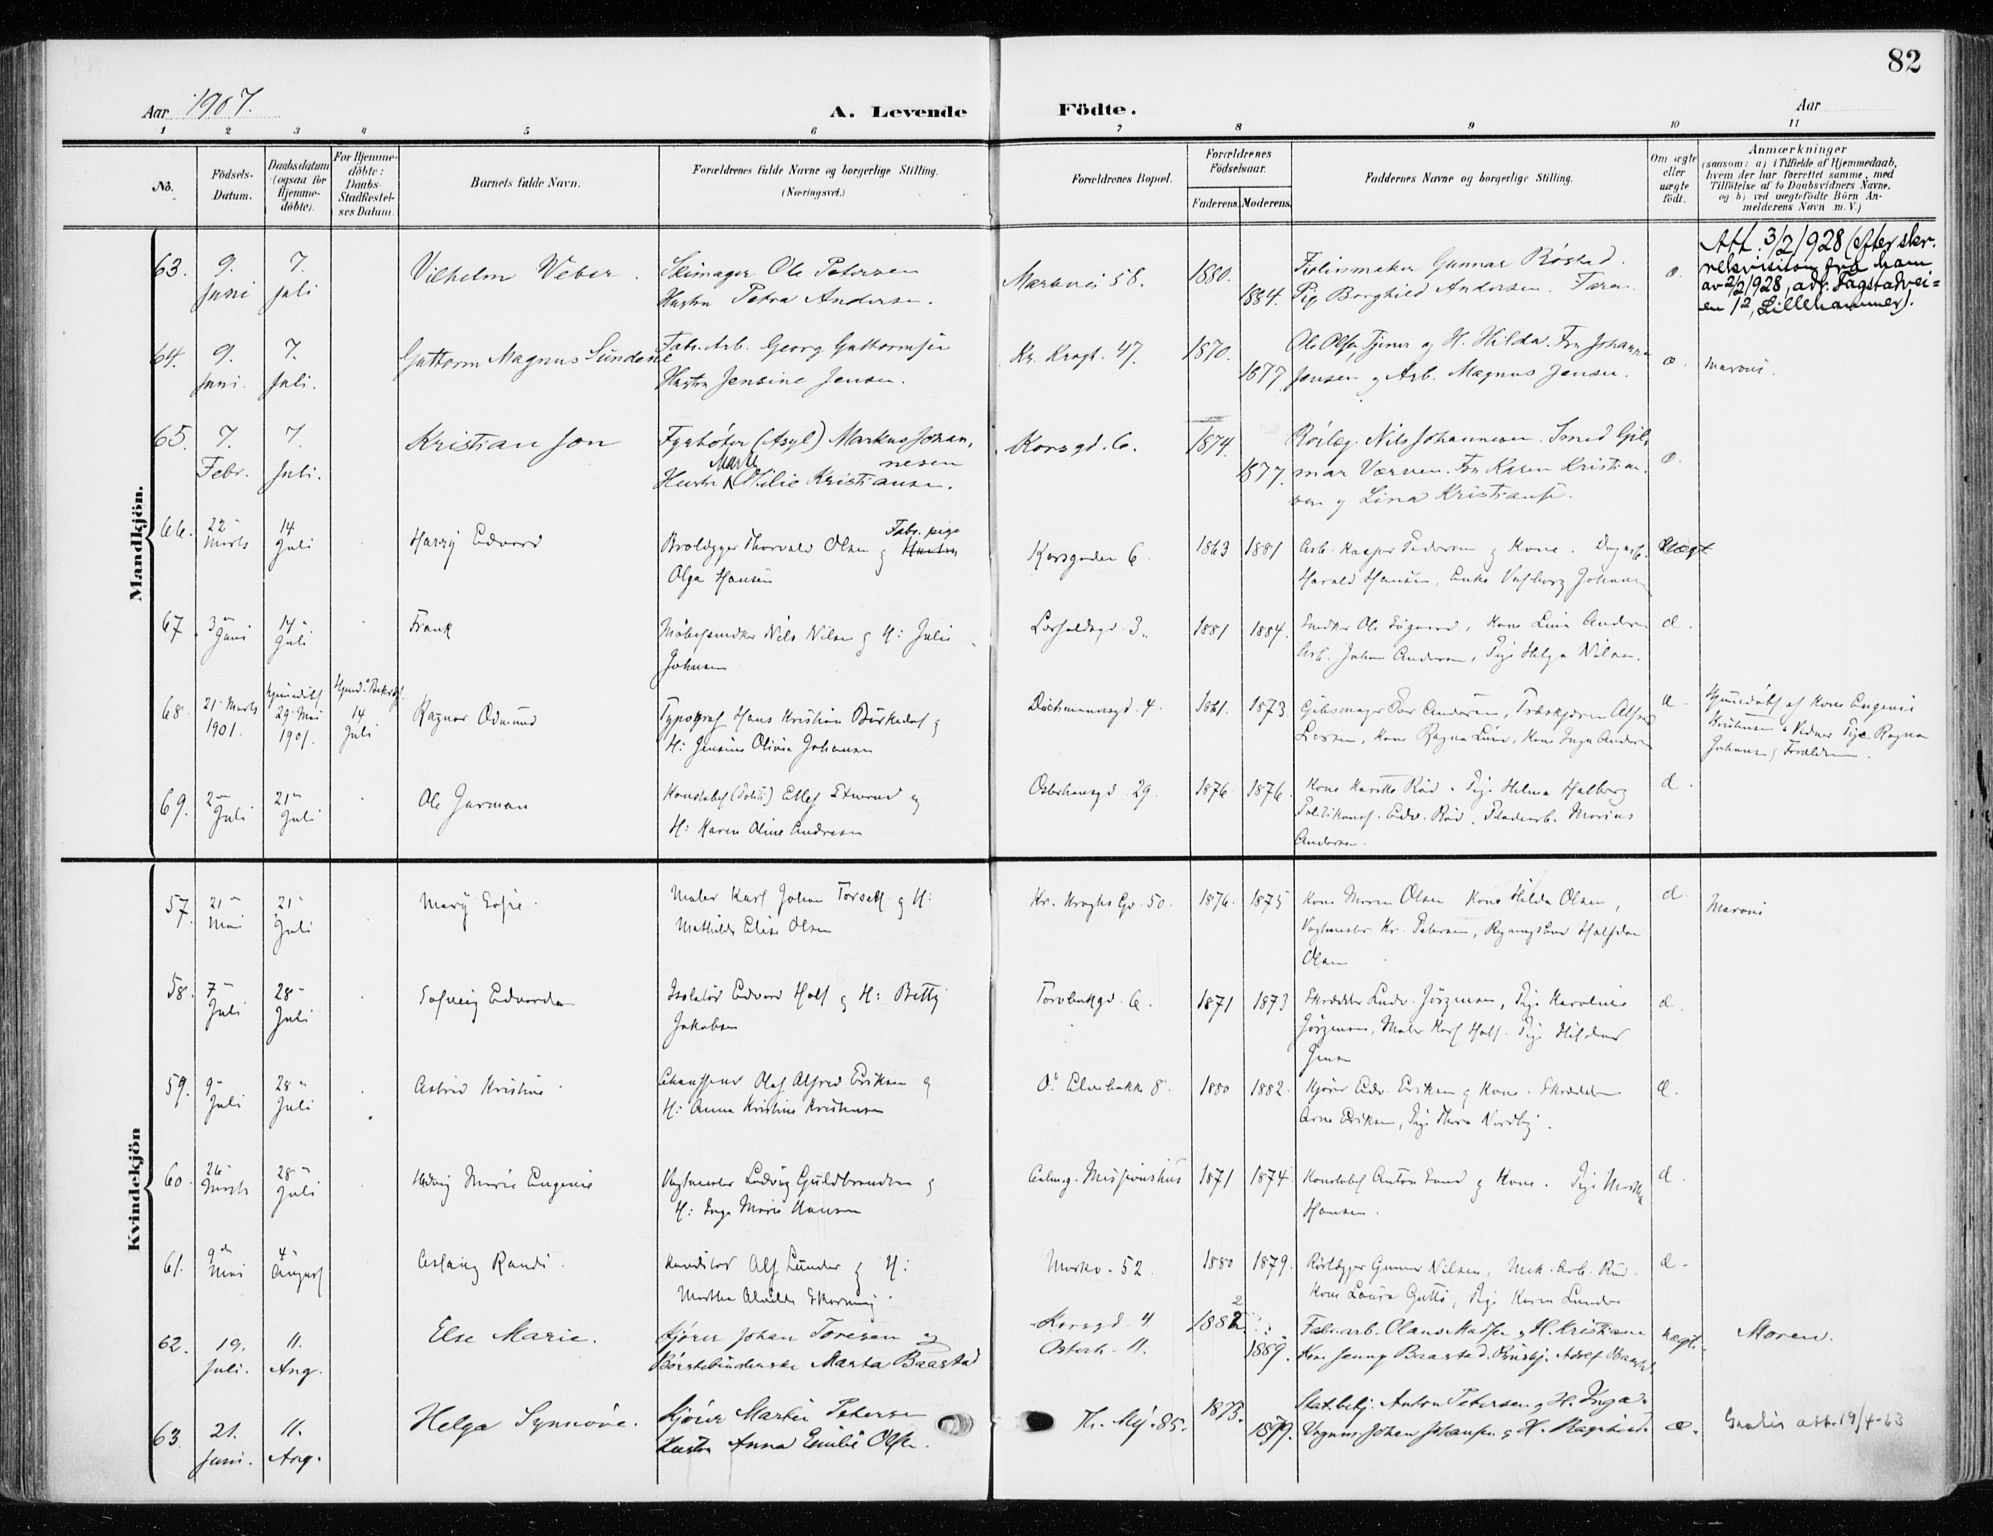 82
Aar 1907.
A. Levende Födte.
Aar
1 2 3 4 5 6 7 8 9 10 11
No.
Födsels-Datum.
Daabsdatum (ogsaa for Hjemme-döbte).
For Hjemme-döbte: Daabs-Stadfæstel-ses Datum.
Barnets fulde Navn.
Forældrenes fulde Navne og borgerlige Stilling.
(Næringsvei.)
Forældrenes Bopæl.
Forældrenes Födselsaar.
Faderens. Moderens.
Faddernes Navne og borgerlige Stilling.
Om ægte eller uægte födt.
Anmærkninger
(saasom: a) i Tilfælde af Hjemmedaab,
hvem der har forrettet samme, med
Tilföielse af to Daabsvidners Navne,
og b) ved uægtefödte Börn An-
melderens Navn m. V.)
Mandkjön.
63. 9. Juni 7. Juli
Vilhelm Weber.
Skimager Ole Petersen
Hustru Petra Andersen.
Markvei 58.
1880. 1884.
Fiolinmaker Gunnar Röstad.
Pig Borghild Andersen. Faren
æ.
Att. 3/2 1928 (efter skr.
rekvisition fra ham
av 2/2 1928, adr. Fagstadvei=
en 12, Lillehammer).
64. 9. Juni. 7. Juli.
Guttorm Magnus Sundene
Fabr. Arb. Georg Guttormsen
Hustru Jensine Jensen.
Kr. Kroght. 47.
1870. 1877
Ole Olsen, Tjener og H. Hilda. Fru Johanna
Jensen og Arb. Magnus Jensen.
æ.
65. 7. Febr. 7. Juli.
Kristian Jon
Fyrböter (Asyl) Markus Johan,
nesen
Hustru Marte Otilie Kristiansen.
Korsgd. 6.
1874. 1877.
Rörlæg. Nils Johannesen. Smed Gil-
mar Værven. Fru Karen Kristian-
sen og Lina Kristians.
æ.
66. 22 Marts 14 Juli
Harry Edvard
Brolægger Thorvald Olsen og Hustru Fabr. pige
Olga Hansen
Korsgaden 6
1863 1881
Arb. Kasper Pedersen og Kone. Dagarb.
Harald Hansen, Enke Valborg Johansen
Uægt
67 3 Juni 14 Juli
Frank
Möbelsnedker Nils Nilsen og H: Julie
Johnsen
3.
1881 1884.
Snedker Ole, Kone Lina Andersen
Arb. Johan Andersen, Pige Helga Nilsen.
æ.
68. 21 Marts 1901. hjemmedöbt 29 Mai 1901. 14 Juli
Ragnar Edmund
Typograf Hans Kristian Birkedal og
H: Jensine Olivia Johansen
Deichmannsgd. 4
1861. 1873.
Gibsmager Per Andersen, Træskjærer Alfred
Larsen, Kone Ragna Lund, Kone Inga Andersen
æ.
Hjemmedöbt af Kone Eugenie
Kristensen. Vidner Pige Ragna
Johansen og Forældrene.
69. 2 Juli 21 Juli
Ole German
Konstabel (Politi) Ellef og
H: Karen Oline Andresen
Osterhausgd. 29.
1876 1876.
Kone Karette Röd. Pige Helma Halberg
Politikonst. Edv. Röd. Pladearb. Marius
Andersen.
æ.
Kvindekjön
57. 21 Mai 21 Juli
Mary Sofie.
Maler Karl Johan Torseth og H:
Mathilde Elise Olsen
Kr. Kroghs Gd. 50.
1876. 1875
Kone Maren Olsen Kone Hilda Olsen,
Vagtmester Kr. Petersen, Halfdan
Olsen
æ.
58. 7 Juli 28 Juli
Solveig Edvarda
Isolatör Edvard Holt og H: Betty
Jakobsen
Torvbakgd. 6.
1871 1873
Skrædder Ludv. Jörgensen, Pige Karoline
Jörgensen, Maler Karl Holt. Pige Hildur
Jensen
æ.
59. 9 Juli 28 Juli
Astrid Kristine.
Chauffeur Olaf Alfred Eriksen og
H: Anna Kristine Kristensen
Ö. Elvebakke 8.
1880 1882.
Kjörer Edv. Eriksen og Kone. Skrædder
Arne Eriksen, Pige Thora Nordby.
æ.
60 26 Marts 28 Juli
Hedvig Marie Eugenie
Vagtmester Ludvig Guldbrandsen og
H: Inga Marie Hansen
Calmeg. Missionshus
1871 1874
Konstabel Anton Sand og Kone. Pige Martha
Hansen.
æ.
61. 9 Mai 4 August
Aslaug Randi.
Konditor Alf Lunder og H:
Martha Skarning.
Markv. 52.
1880 1879.
Rörlægger Gunnar Nilsen, Mek. Arb. Rud.
Kone Laura Gutto, Pige Karen Lunder
æ.
62. 19. Juli. 11. Aug.
Else Marie.
Kjörer Johan Toresen og
Börstebinderske Marta Baastad
Korsgd. 4
Osterh. 11.
1882 1889.
Fabr.arb. Olaus Madsen og H. Kristiane
Kone Jenny Baastad. Adolf Baastad.
uægte.
Moren.
63. 21. Juni. 11. Aug.
Helga Synnöve.
Kjörer Martin Petersen
Hustru Anna Emilie Olsen.
Th. Mej. 85.
1873. 1879.
Stat.betj. Anton Petersen og H. Inga.
Vognm. Johan Johansen og H. Ragnhild.
æ.
Gratis att. 19/4-43